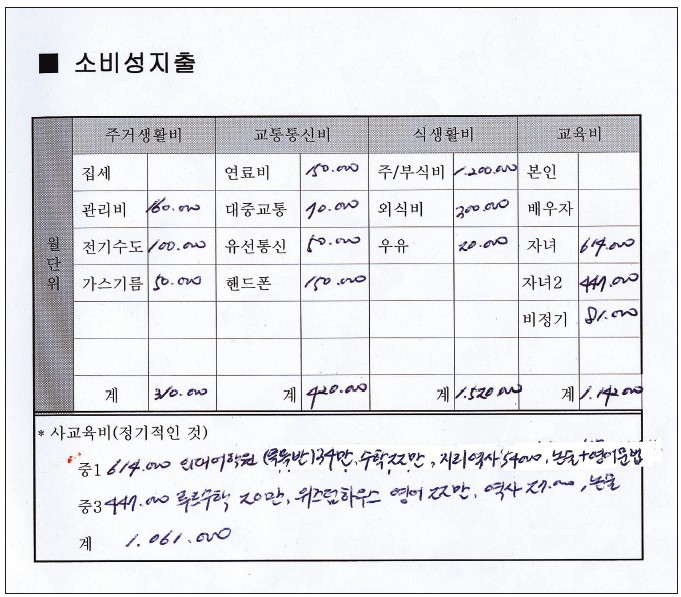 ■ 소비성지출
주거생활비 교통통신비 식생활비 교육비
월단위
집세 연료비 150.000 주/부식비 1.200.000 본인
관리비 160.000 대중교통 70.000 외식비 300.000 배우자
전기수도 100.000 유선통신 50.000 우유 20.000 자녀 614.000
가스기름 50.000 핸드폰 150.000 자녀2 447.000
비정기 81.000
계 310.000 계 420.000 계 1.520.000 계 1.142.000
* 사교육비(정기적인 것)
중1 614.000 외대어학원 34만, 수학 22만, 지리역사 54000, 논술+영어문법
중3 447.000 루르수학 20만, 위즈덤하우스 영어 22만, 역사 27.000, 논술
계 1.061.000